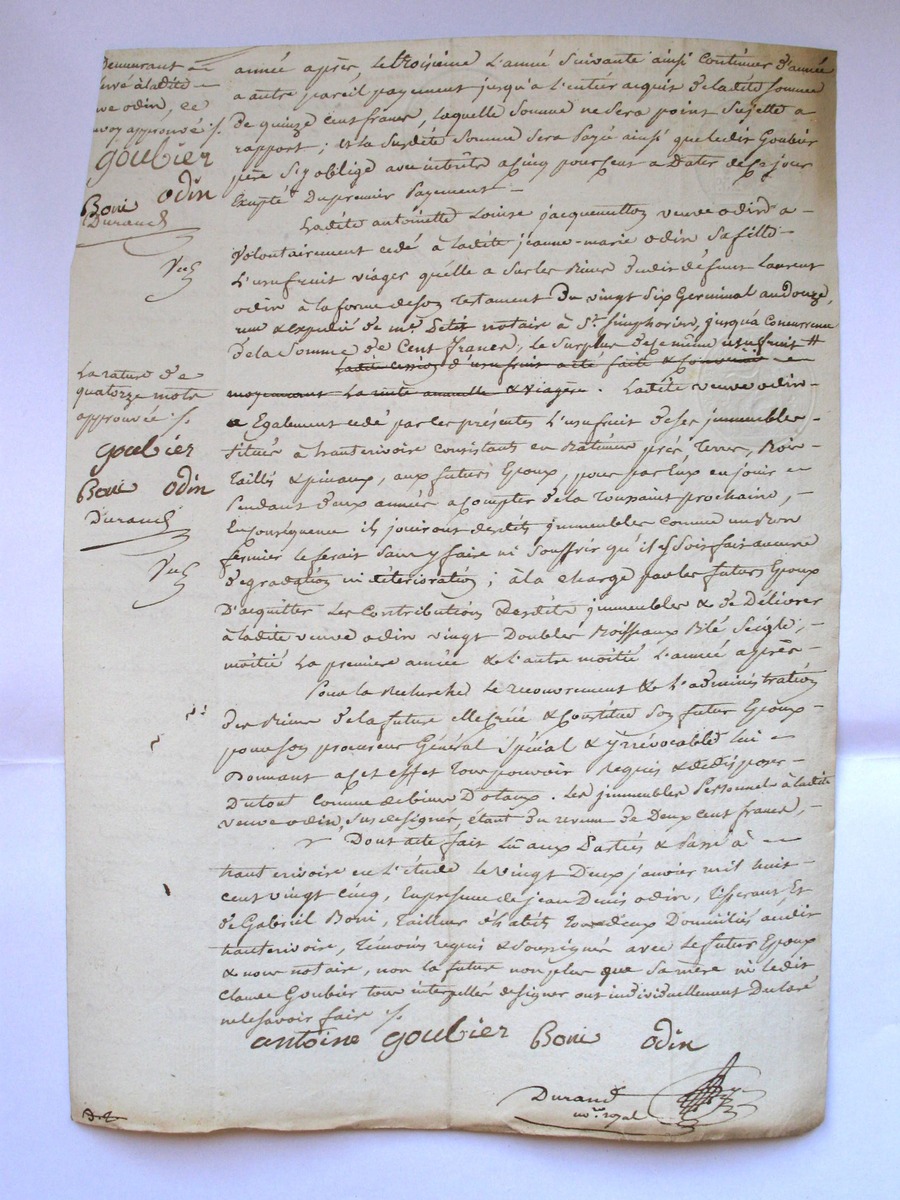 Demeurant
réservé à ladite
veuve odin, ce
renvoy approuvé ./.
goubier
Boni odin
Durand
année après le troisieme l'année Suivante ainsi Continuer d'année
a autre pareil payement jusqu'à l'entier acquis de ladite somme
de quinze cent francs, laquelle Somme ne sera point Sujette a
rapport; et la Susdite Somme Sera payé ainsi que ledit Goubier
père s'y oblige avec intérêts a cinq pour cent a dater de ce jour
Excepté du premier Payement –
Ladite antoinette Louise jacquemetton veuve odin a
Volontairement cedé à ladite jeanne-marie odin sa fille
L'usufruit viager qu'elle a sur les Biens dudit défunt Laurent
odin à la forme de son Testament du vingt six Germinal an douze,
reçu & expédié de me. Petit notaire à St. Simphorien, jusqu'à Concurrence
de la Somme de Cent Francs, le Surplus de ce même usufruit #
Ladite cession d'usufruit a été faite &
moyennant La rente annuelle & viagère. Ladite veuve odin
a Egalement cedé par les présentes L'usufruit de ses immeubles
situés à hauterivoire consistants en Batiments, prés, Terres, Bois
Taillis & pinaux, aux futurs Epoux, pour par Eux en jouir
Pendant deux années a compter de la Toussaint prochaine,
En conséquence ils jouiront desdits immeubles comme un Bon
fermier le ferait Sans y faire ni Souffrir qu'il y Soit fait aucune
dégradation ni détérioration; à la charge par les futurs Epoux
D'acquitter Les Contributions desdits immeubles & de Délivrer
à ladite veuve odin vingt Doubles Boisseaux Blé Seigle,
moitié La première année & l'autre moitié L'année après
La rature de
quatorze mots
approuvée ./.
goubier
Boni odin
Durand
Pour la Recherche Le recouvrement & L'administration
des Biens de la future elle Créé & Constitue Son futur Epoux
pour son procureur Général Spécial & yrrévocable lui
Donnant a cet effet Tous pouvoir Requis & de disposer
Du tout Comme de biens Dotaux. Les jmmeubles Personnel à ladite
veuve odin, sus designés, étant du revenu de Deux cent francs,
Dont acte fait Lu aux Parties & Passé à
hauterivoire en L'étude le vingt Deux janvier mil huit
cent vingt cinq, En presence de jean Denis odin, Tisserant Et
de Gabriel Boni, Tailleur d'habits Tous deux Domiciliés audit
hauterivoire, Témoins requis & Soussignés avec Le futur Epoux
& nous notaire, non la future non plus que Sa mère ni ledit
Claude Goubier tous interpellés de signer ont individuellement Declaré
ne le savoir faire ./.
antoine goubier Boni odin
Durand
nore. royal